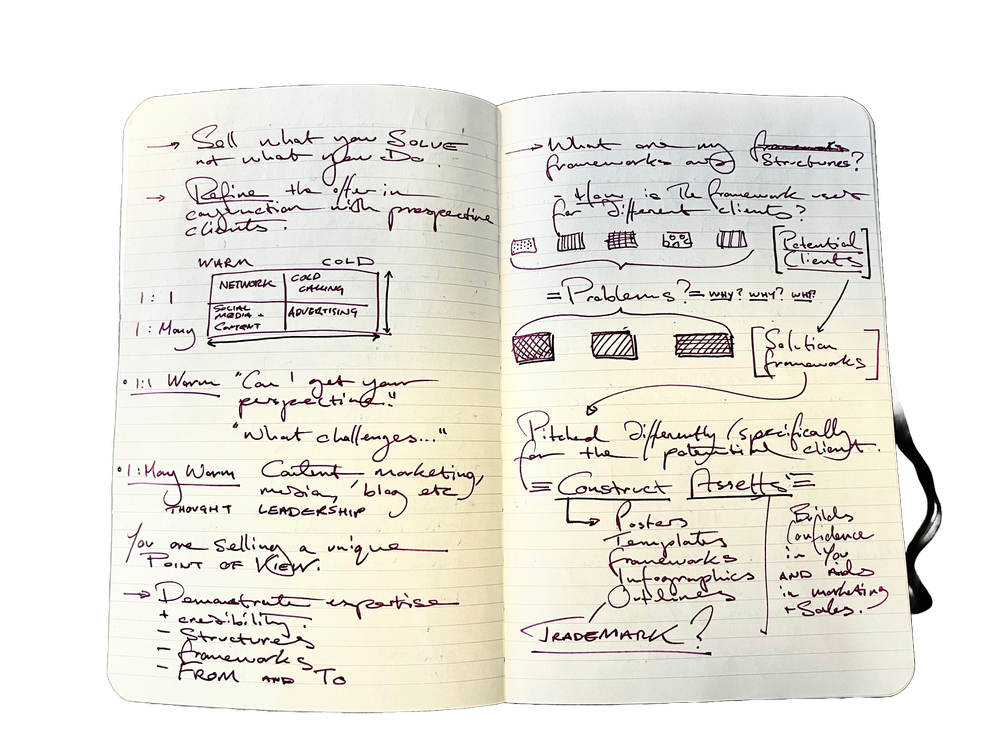 → Sell what you SOLVE
not what you Do.
→ Refine the offer in
conjunction with prospective
clients.
WARM COLD
1:1
NETWORK
COLD
CALLING
1:Many
SOCIAL
MEDIA +
CONTENT
ADVERTISING
• 1:1 Warm "Can I get your
perspective."
"What challenges..."
• 1:Many Warm Content marketing,
media, blog etc
THOUGHT LEADERSHIP
You are selling a unique
POINT OF VIEW.
→ Demonstrate expertise
+ credibility.
- Structures
- frameworks
- FROM AND TO
→ What are my
frameworks and Structures?
- How is the framework used
for different clients?
[Potential
Clients]
= Problems? = WHY? WHY? WHY?
[Solution
frameworks]
Pitched differently/specifically
for the potential client.
= Construct Assetts =
→ Posters
Templates
frameworks
Infographics
Outlines
TRADEMARK?
Builds
Confidence
in You
AND AIDS
in marketing
+ Sales.